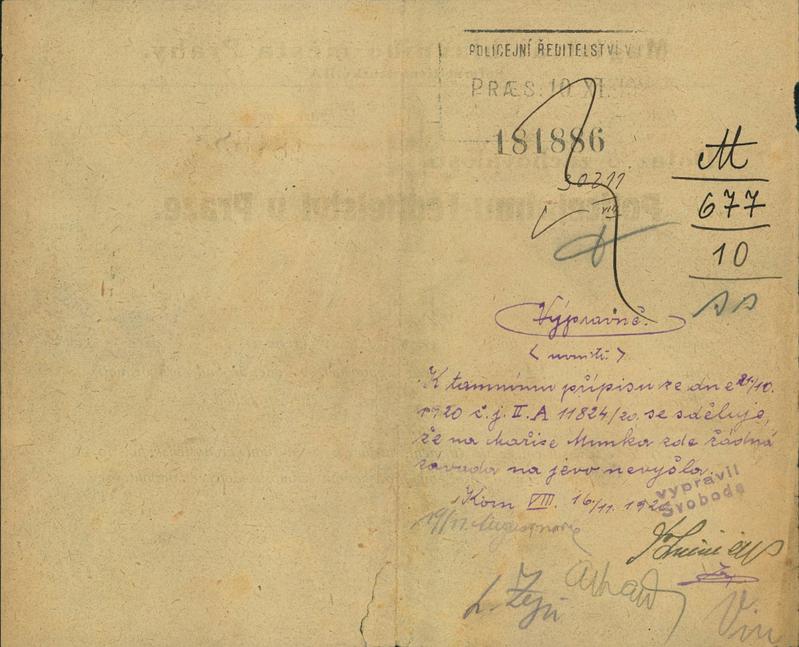 POLICEJNÍ ŘEDITELSTVÍ V
PRÆS. 10 XI.
181886
30211
VIII
M
677
10
Výpravně.
K tamnímu přípisu ze dne 21/10.
1920 č.j. II. A 11824/20. se sděluje,
že na Mořice Munka zde žádná
zavada na jevo nevyšla.
Kom VIII. 16/11. 192
vypravil
Svoboda
19/11